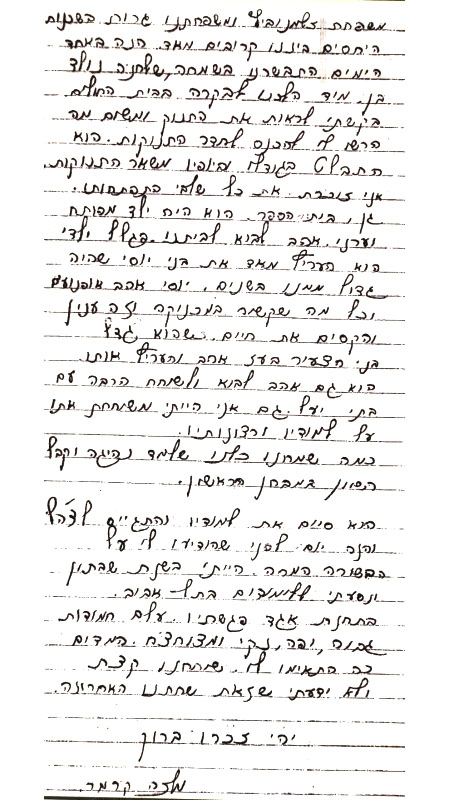 משפחת זלמנוביץ ומשפחתנו גרות בשכנות
היחסים ביננו קרובים מאד. הנה באחד
הימים התבשרנו בשמחה, שלחיה נולד
בן. מיד הלכנו לבקרה בבית החולים
ביקשתי לראות את התנוק ומשום מה
הרשו לי להכנס לחדר התנוקות. הוא
התבלט בגודלו וביופיו משאר התנוקות.
אני זוכרת את כל שלבי התפתחותו.
גן, בית הספר. הוא היה ילד מפותח
וערני. אהב לבוא לביתנו בגלל ילדי
הוא העריץ מאד את בני יוסי שהיה
גדול ממנו בשנים. יוסי אהב אופנועים
וכל מה שקשור במכניקה וזה ענין
והקסים את חיים. כשהוא גדל
בני הצעיר בעז אהב והעריץ אותו.
הוא גם אהב לבוא ולשוחח הרבה עם
בתי יעל. גם אני הייתי משוחחת אתו
על למודיו ורצונותיו.
כמה שמחנו כלנו שלמד נהיגה וקבל
רשיון במבחן הראשון.
הוא סיים את למודיו והתגייס לצה"ל
והנה יום לפני שהודיעו לי על
הבשורה המרה. הייתי בשנת שבתון
ונסעתי ללימודים בתל-אביב.
בתחנת אגד פגשתיו. עלם חמודות
גבוה, יפה, נקי ומצוחצח. המדים
כה התאימו לו. שוחחנו קצת
ולא ידעתי שזאת שיחתנו האחרונה.
יהי זכרו ברוך
מזה קרמר.